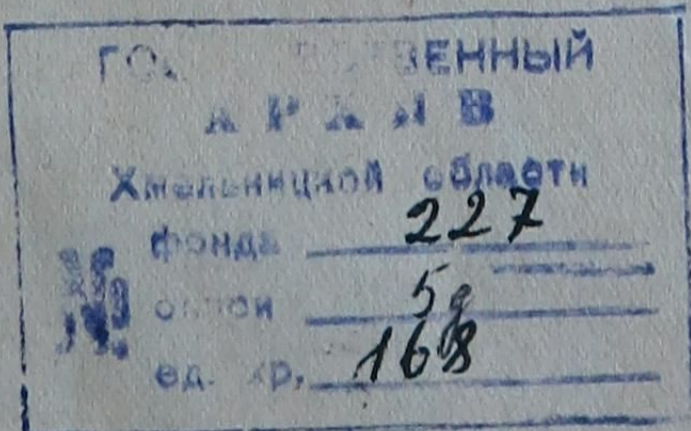 ГОСУДАРСТВЕННЫЙ
АРХИВ
Хмельницкой области
№ фонда 227
описи 5д
ед. хр. 168